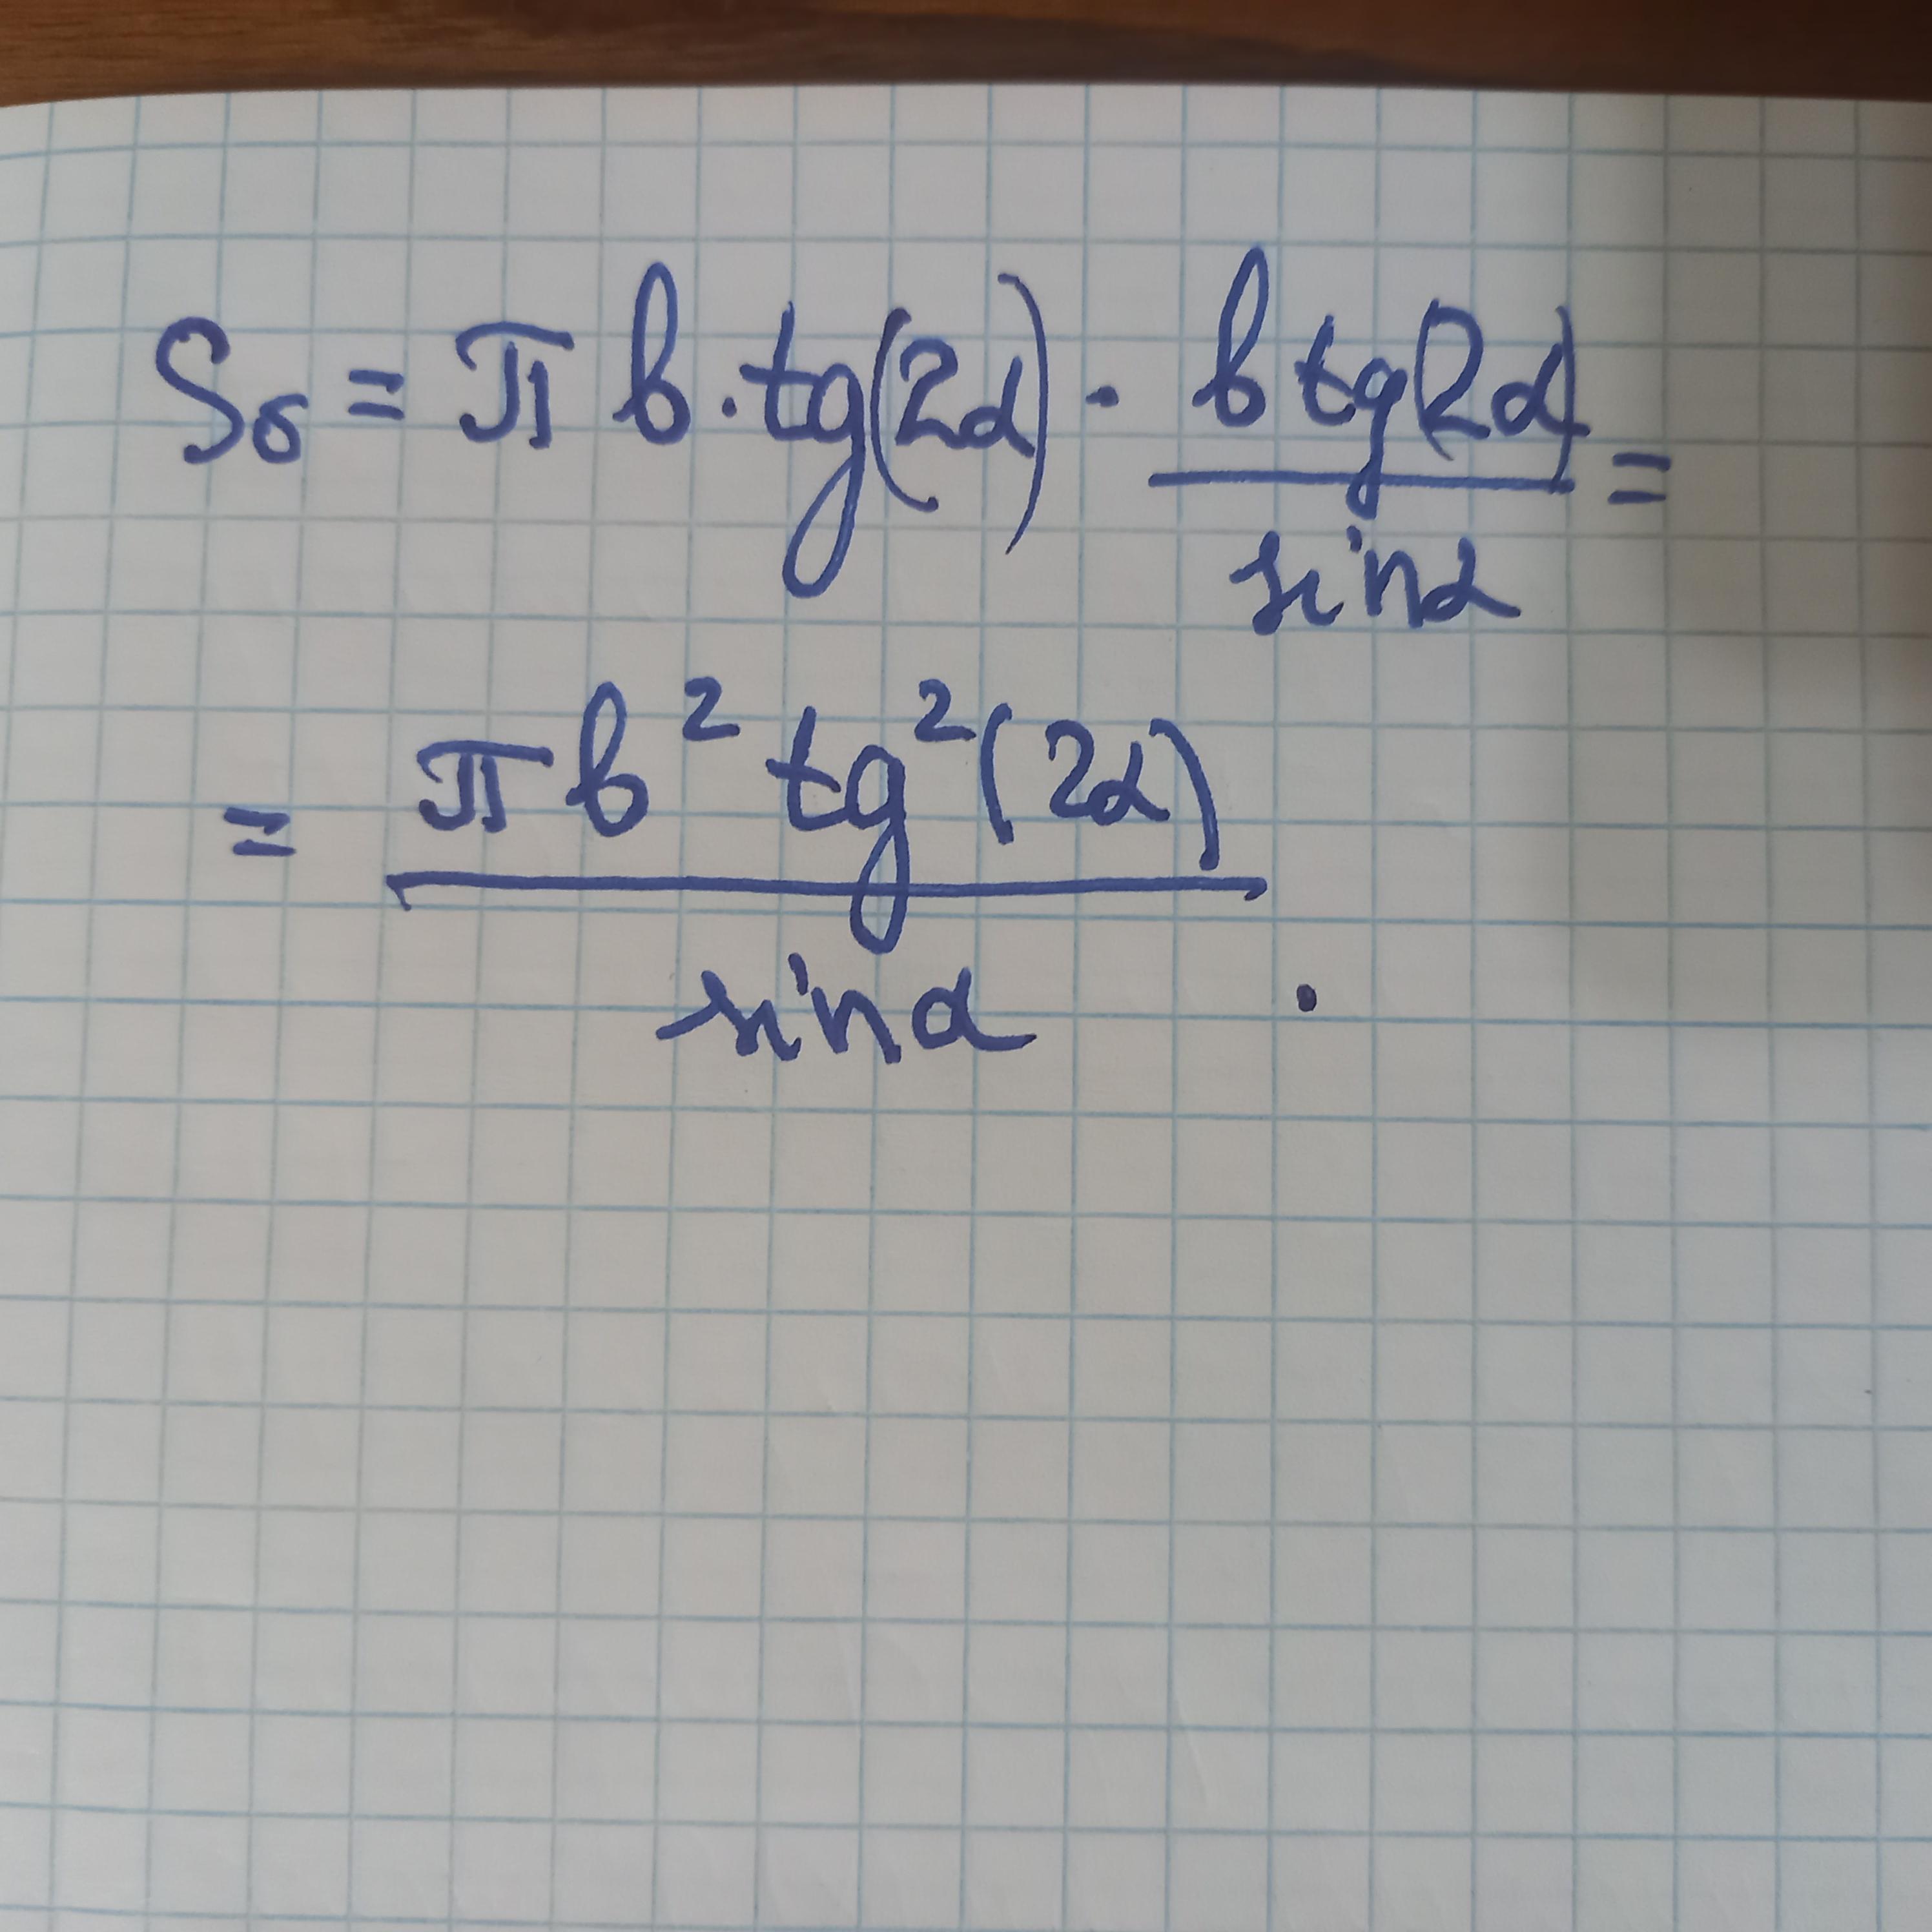 Sб = π b · tg(2α) · b tg(2α) / sinα =
= π b² tg²(2α) / sin α .